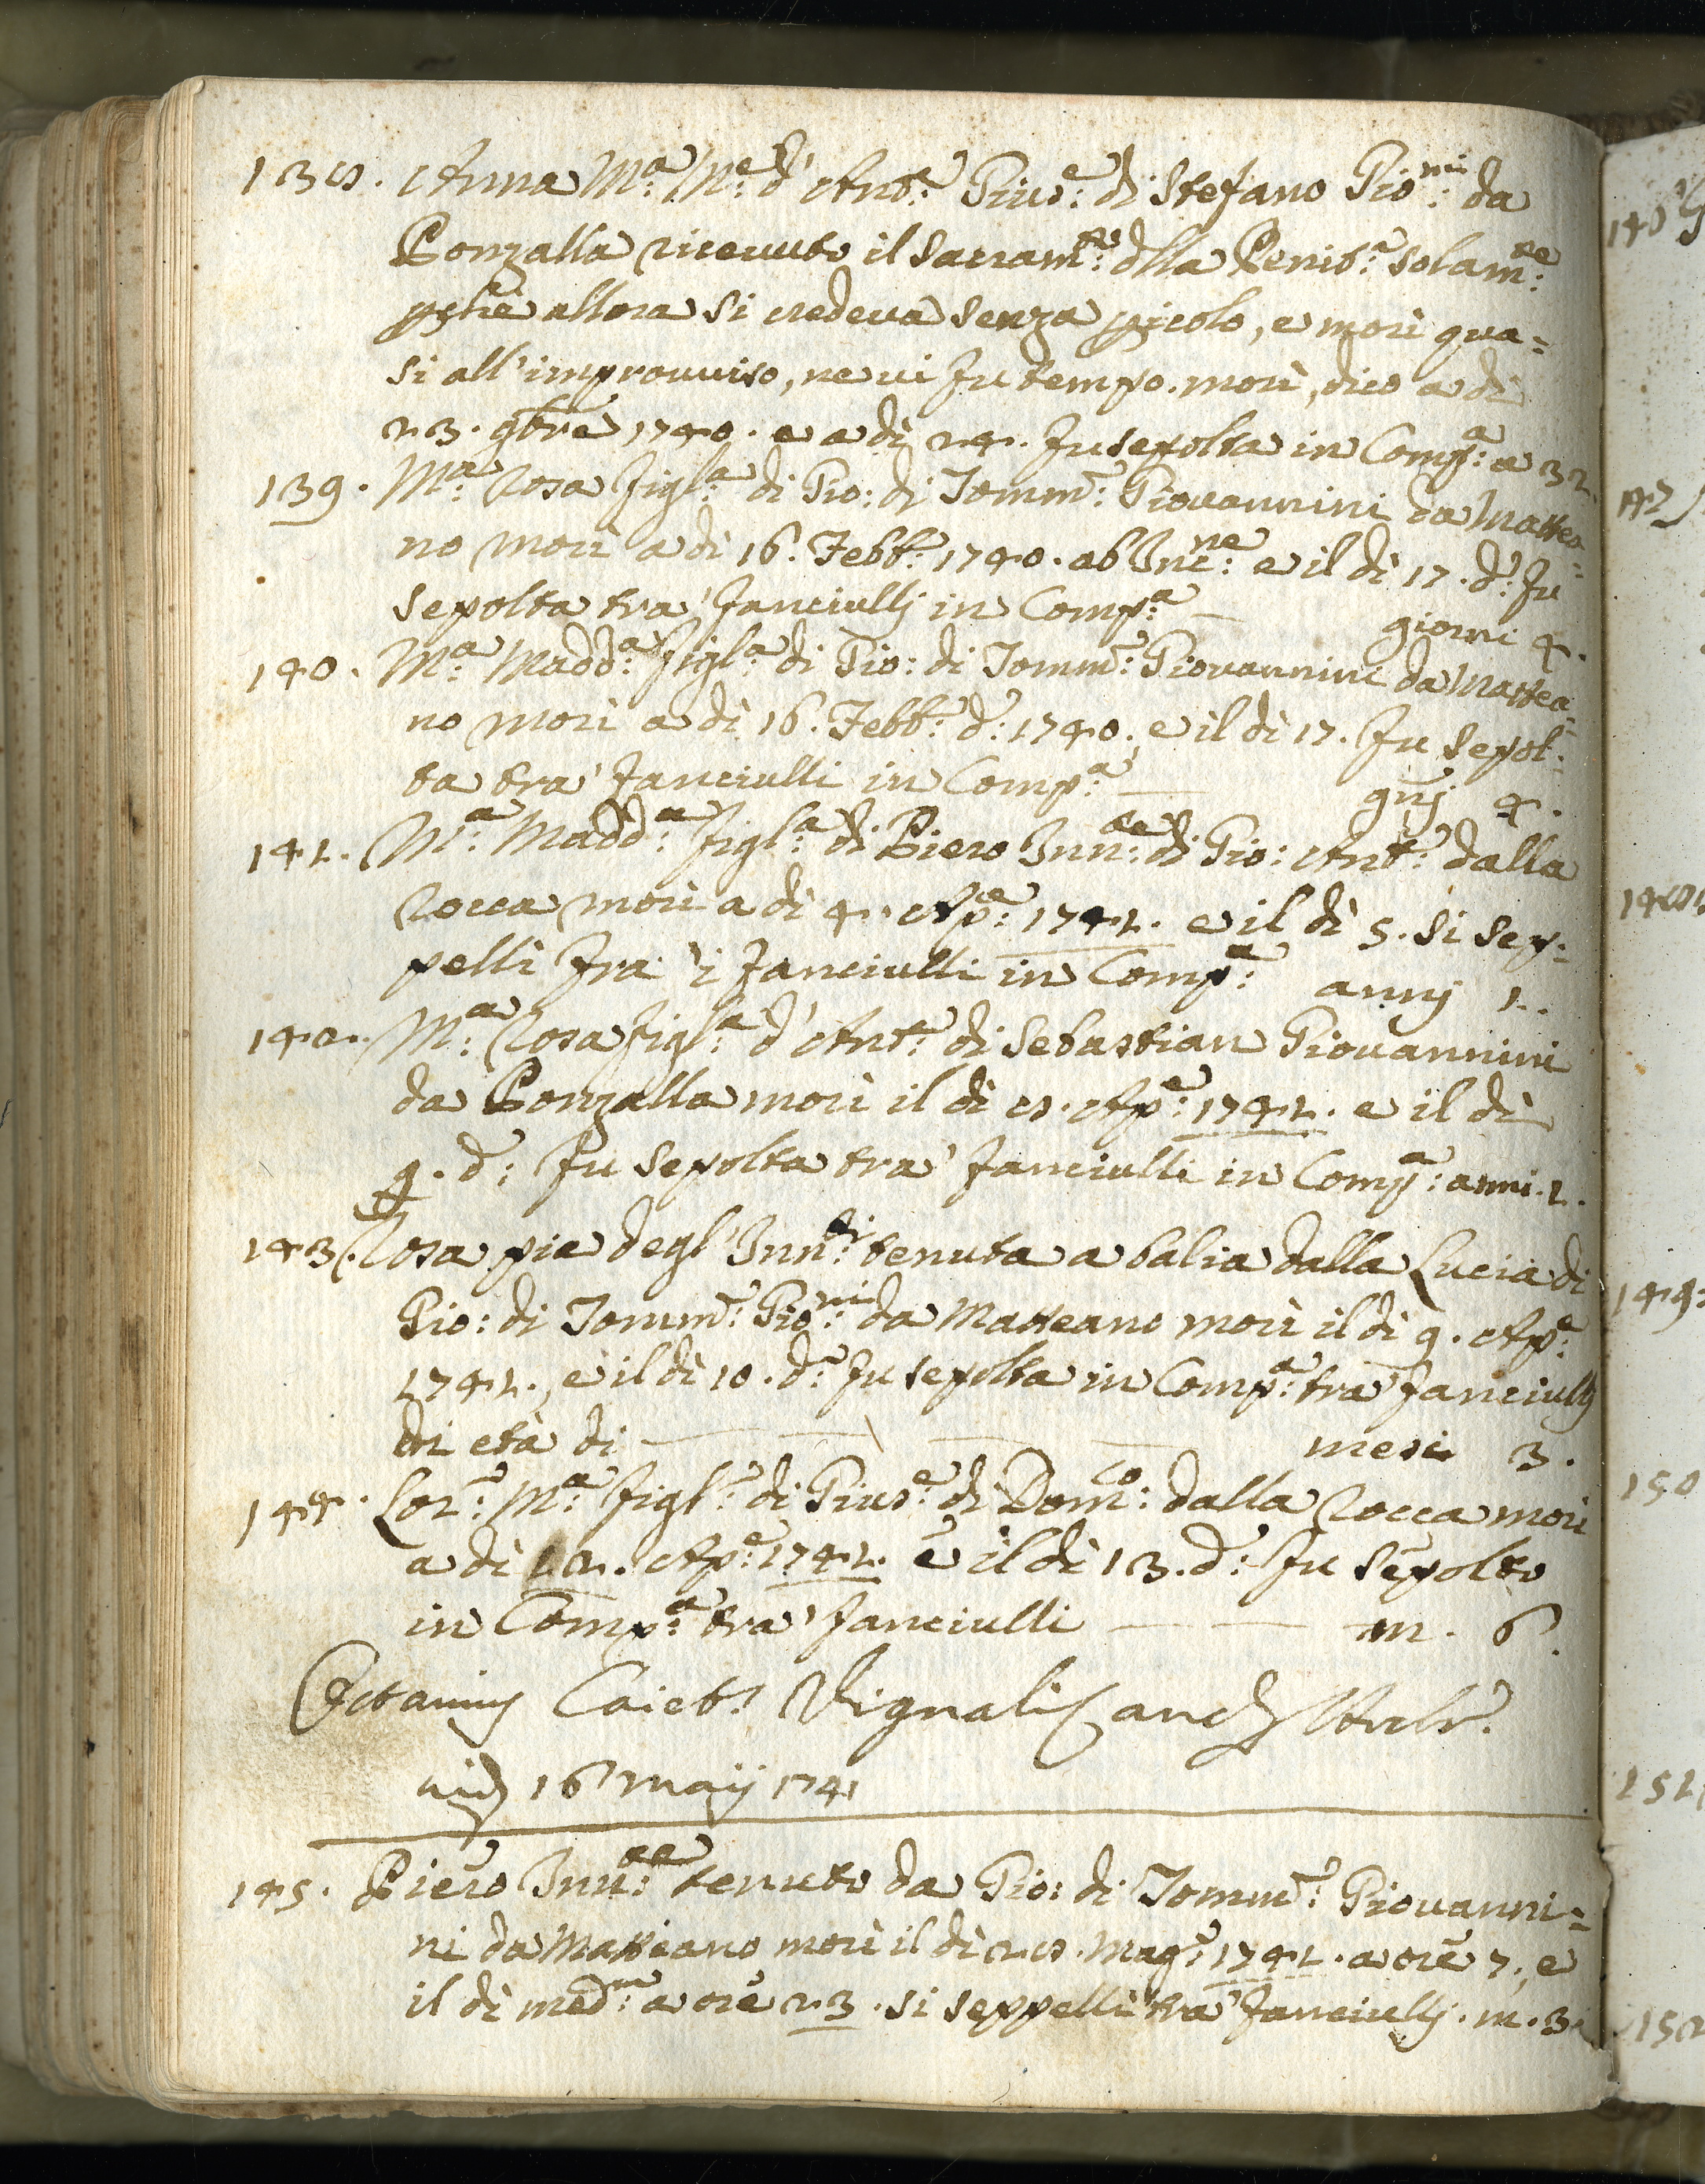 138. Anna Ma: Me: d'Anto: Giuse: di Stefano Gioni: da
Ponzalla riceuuto il Sacramto: dlla Penita: solamte:
pche allora si credeua senza picolo, e morì qua=
si all'improuuiso, ne ui fu tempo. morì, dico a dì
23. 9bre 1740. e a dì 24. fu sepolta in Compa: a 32.
139. Ma: Rosa figla: di Gio: di Tommo: Giouannini da Mattea=
no morì a dì 16. Febbo: 1740. ab Incne: e il dì 17. do: fu
sepolta tra' fanciullj in Compa: — giorni 4.
140. Ma: Madda: figla: di Gio: di Tommo: Giouannini da Mattea=
no morì a dì 16. Febbo: do: 1740., e il dì 17. fu sepol=
ta tra' fanciulli in Compa: — gnj 4.
141. Ma: Madda: figla: di Piero Innte: di Gio: Anto: dalla
Rocca morì a dì 4. Ape: 1741. e il dì 5. si sep=
pellì fra' i fanciulli in Compa: annj 1.
142. Ma: Rosa figla: d'Anto: di Sebastian Giouannini
da Ponzalla morì il dì 8. Ape: 1741. e il dì
9. do: fu sepolta tra' fanciulli in Compa: anni. 1.
143. Rosa pia degl'Innti: tenuta a balia dalla Lucia di
Gio: di Tommo: Gioni: da Matteano morì il dì 9. Ape:
1741., e il dì 10. do: fu sepolta in Compa: tra' fanciullj
di età di — — — — mesi 3.
144. Loro: Ma: figlo: di Giuse: di Domco: dalla Rocca morì
a dì 12. Ape: 1741. e il dì 13. do: fu sepolto
in Compa: tra' fanciulli — — m. 6.
Vignali
16 Maij 1741
145. Piero Innte: tenuto da Gio: di Tommo: Giouanni=
ni da Matteano morì il dì 28. Mago: 1741. a ore 7., e
il dì medmo: a ore 23. si seppellì tra' fanciullj. m. 3.
140
147
148
149:
150
151
152